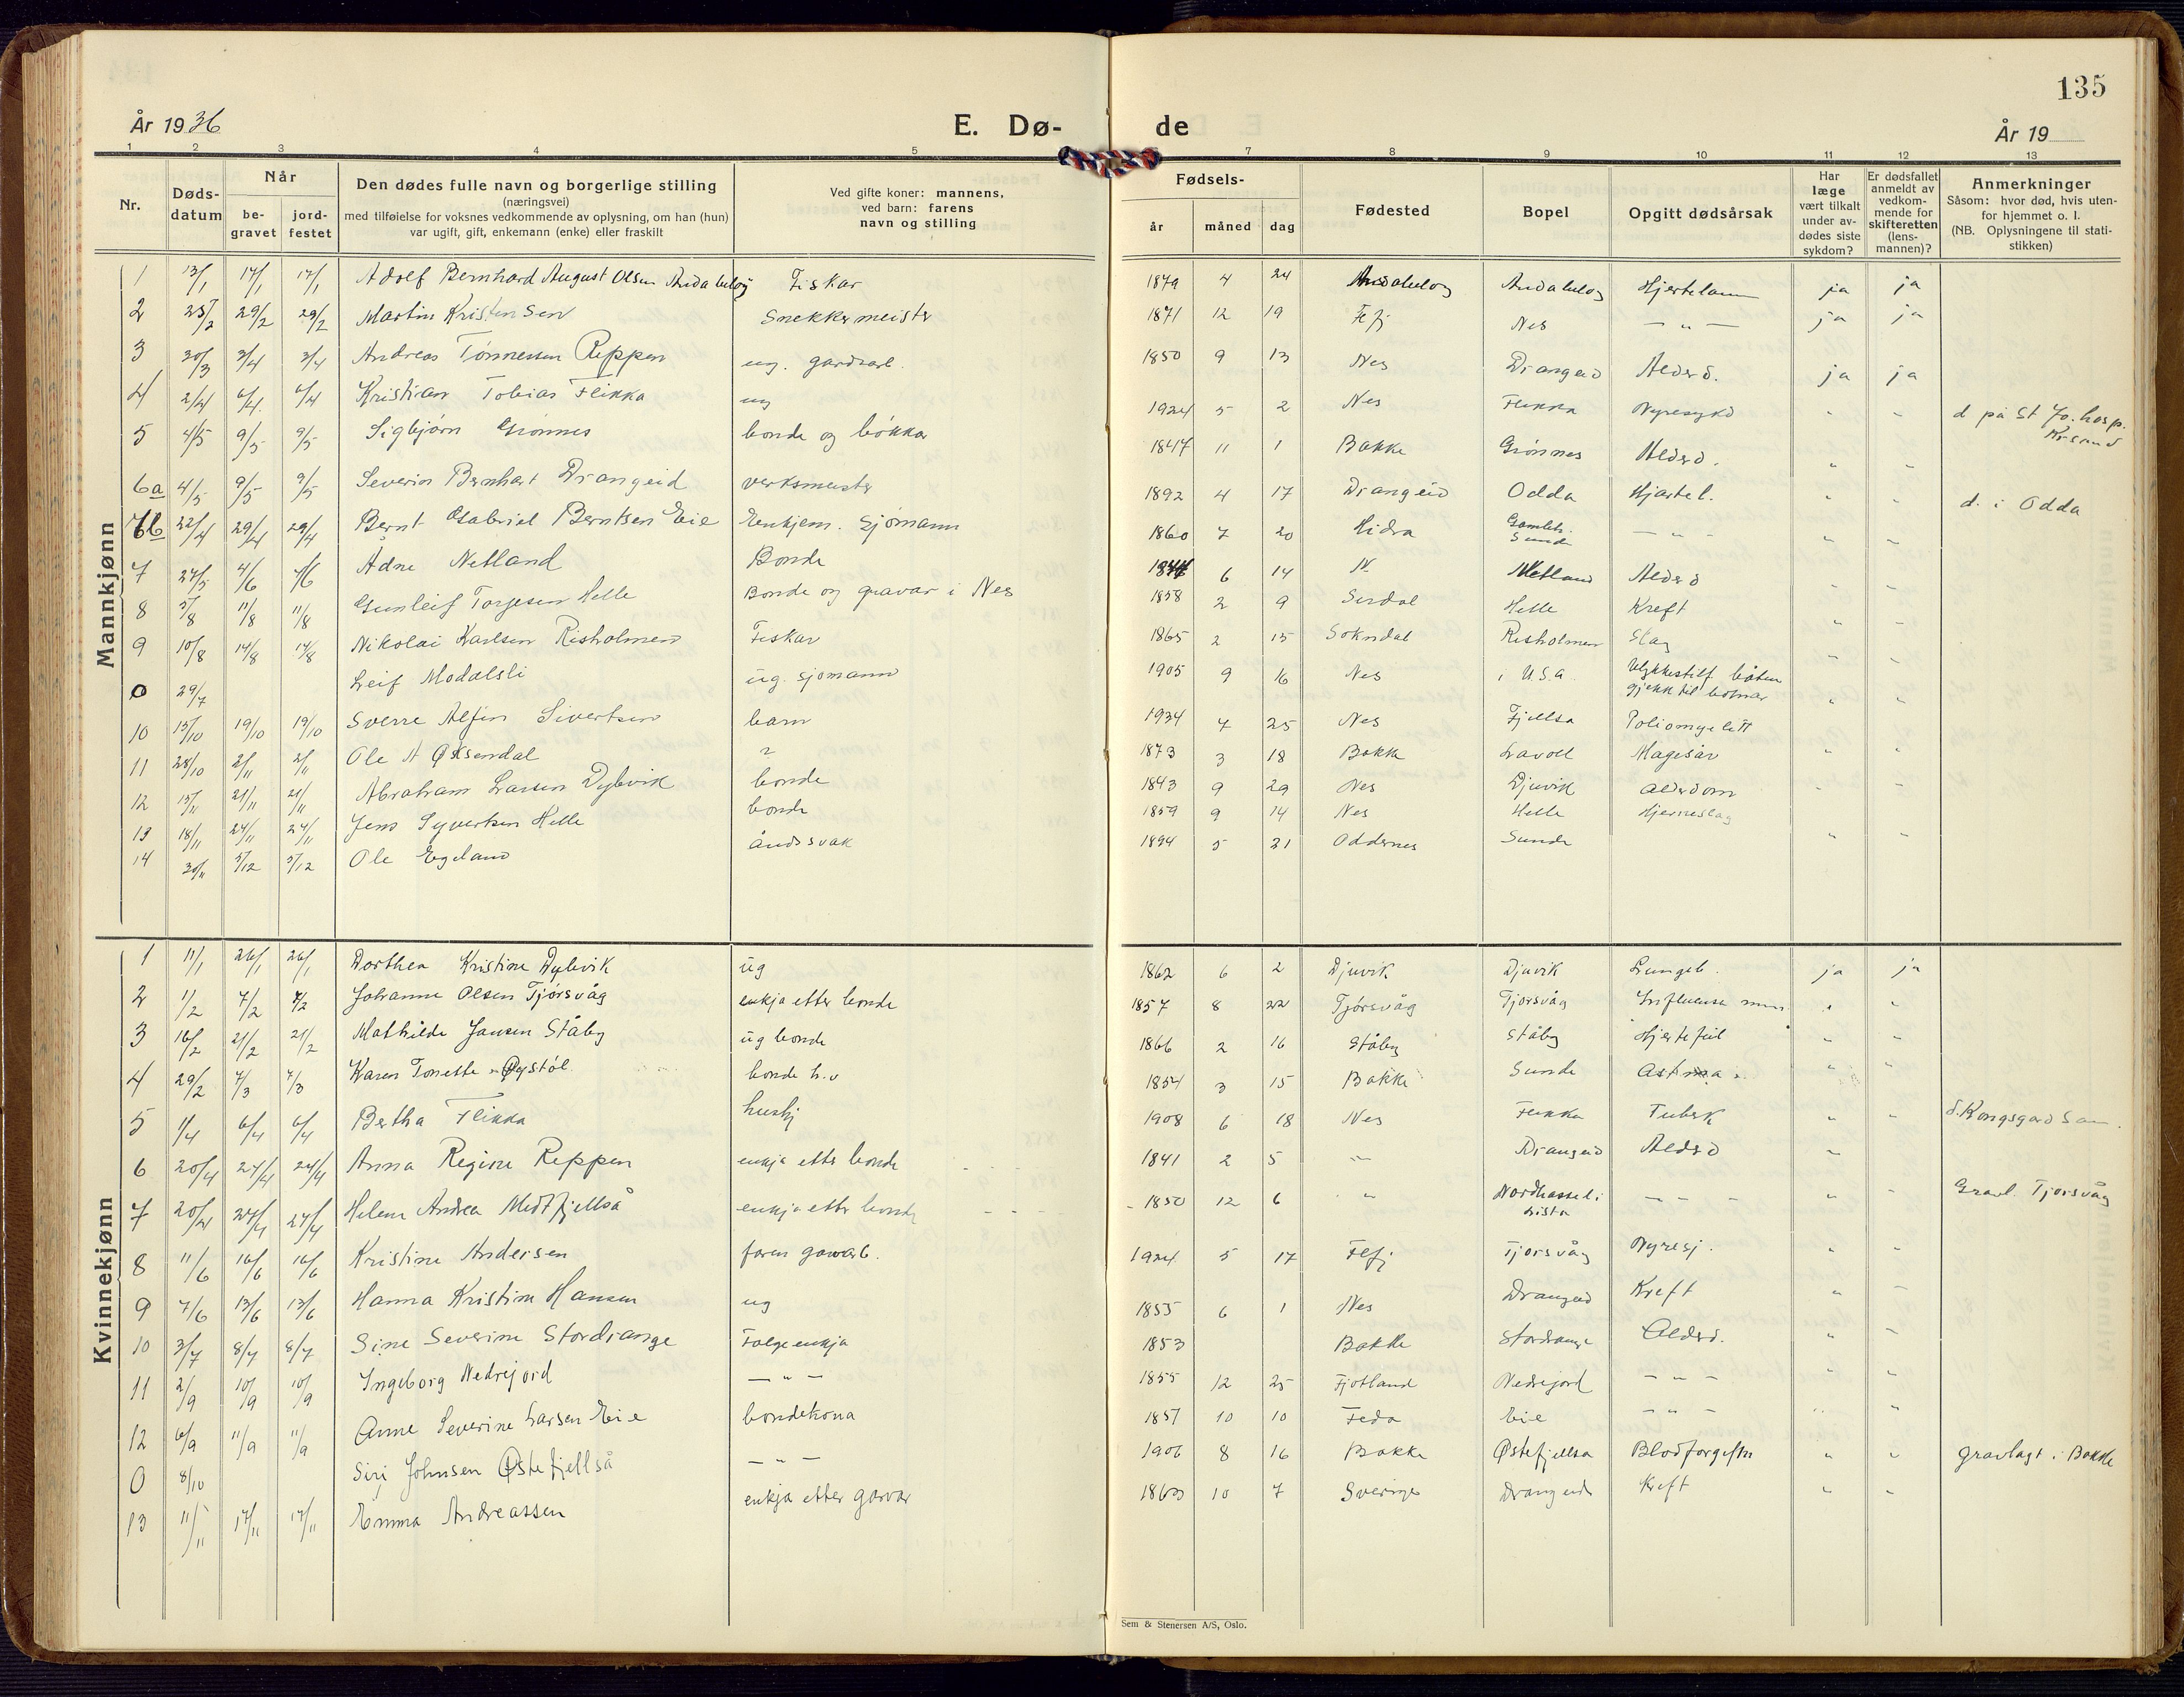 135
År 1936
E. Dø-
de
År 19
1 2 3 4 5 7 8 9 10 11 12 13
Nr.
Døds-
datum
Når
be-
gravet
jord-
festet
Den dødes fulle navn og borgerlige stilling
(næringsvei)
med tilføielse for voksnes vedkommende av oplysning, om han (hun)
var ugift, gift, enkemann (enke) eller fraskilt
Ved gifte koner: mannens,
ved barn: farens
navn og stilling
Fødsels-
år
måned
dag
Fødested
Bopel
Opgitt dødsårsak
Har
læge
vært tilkalt
under av-
dødes siste
sykdom?
Er dødsfallet
anmeldt av
vedkom-
mende for
skifteretten
(lens-
mannen)?
Anmerkninger
Såsom: hvor død, hvis uten-
for hjemmet o. l.
(NB. Oplysningene til stati-
stikken)
Mannkjønn
1 13/1 17/1 17/1 Adolf Bernhard August Olsen Andabeløy Fiskar 1879 4 24 Andabeløy Andabeløy Hjertelam ja ja
2 25/2 29/2 29/2 Martin Kristensen Snekkermeister 1871 12 19 Fefj Nes — " — ja ja
3 30/3 3/4 3/4 Andreas Tønnessen Reppen ug. gardsarb. 1850 9 13 Nes Drangeid Alderd. ja ja
4 2/4 6/4 6/4 Kristian Tobias Flikka ug 1924 5 2 Nes Flikka Nyresykd " " d på St Jo. hosp.
Krsand
5 4/5 9/5 9/5 Sigbjørn Grønnes bonde og bøkkar 1847 11 1 Bakke Grønnes Alderd. " "
6a 4/5 9/5 9/5 Severin Bernhart Drangeid verksmeister 1892 4 17 Drangeid Odda Hjartel. " " d. i Odda
6b 22/4 29/4 29/4 Bernt Gabriel Berntsen Eie Enkjem. Sjømann 1860 7 20 Hidra Gamleh. Sunde — " - " "
7 27/5 4/6 4/6 Ådne Netland Bonde 6 14 N. Netland Alderd " "
8 5/8 11/8 11/8 Gunleif Torjesen Helle Bonde og gravar i Nes 1858 2 9 Sirdal Helle Kreft " "
9 10/8 14/8 14/8 Nikolai Karlsen Risholmen Fiskar 1865 2 15 Sokndal Risholmen Slag " "
0 29/7 Leif Modalsli ug. sjømann 1905 9 16 Nes i U.S.A. Ulykkestilf båten
gjekk til botnar " "
10 15/10 19/10 19/10 Sverre Alfin Sivertsen barn 1934 7 25 Nes Fjellså Poliomyelitt
11 28/10 2/11 2/11 Ole A Øksendal " 1873 3 18 Bakke Lavoll Magesår " "
12 15/11 21/11 21/11 Abraham Larsen Dybvik bonde 1843 9 29 Nes Djuvik Alderdom " "
13 18/11 24/11 24/11 Jens Syvertsen Helle bonde 1859 9 14 Nes Helle Hjerneslag
14 30/11 5/12 5/12 Ole Egeland åndssvak 1894 5 21 Oddernes Sunde " "
Kvinnekjønn
1 11/1 26/1 26/1 Dorthea Kristine Dybvik ug 1862 6 2 Djuvik Djuvik Lungeb. ja ja
2 1/2 7/2 7/2 Johanne Olsen Tjørsvåg enkja etter bonde 1857 8 22 Tjørsvåg Tjørsvåg Influensa " "
3 16/2 21/2 21/2 Mathilde Jansen Ståby ug bonde 1866 2 16 Ståby Ståby Hjertefeil " "
4 29/2 7/3 7/3 Karen Tonette Øystøl bonde h.v 1854 3 15 Bakke Sunde Astma " "
5 1/4 6/4 6/4 Bertha Flikka hushj 1908 6 18 Nes Flikka Tuberk " " d. Kongsgard San.
6 20/4 24/4 24/4 Anna Regine Reppen enkja etter bonde 1841 2 5 " Drangeid Alderd "
7 20/4 27/4 27/4 Helene Andrea Midtfjellså enkja etter bonde 1850 12 6 " Nordhassel i
Lista - - - " " Gravl. Tjorsvåg
8 11/6 16/6 16/6 Kristine Andersen faren garvarb. 1924 5 17 Flefj Tjorsvåg Nyresj. " "
9 7/6 13/6 13/6 Hanna Kristine Hansen ug 1855 6 1 Nes Drangeid Kreft " "
10 3/7 8/7 8/7 Sine Severine Stordrange Folgeenkja 1853 Bakke Stordrange Alderd. " "
11 2/9 10/9 10/9 Ingeborg Nedrejord — " — 1855 12 25 Fjotland Nedrejord — " — " "
12 6/9 11/9 11/9 Anne Severine Larsen Eie bondekona 1857 10 10 Feda Eie — " — " "
0 8/10 Siri Johnsen Østefjellså — " — 1906 8 16 Bakke Østefjellså Blodforgiftn " " gravlagt i Bakke
13 11/11 17/11 17/11 Emma Andreassen enkja etter garvar 1860 10 7 Sverige Drangeid Kreft " "
Sem & Stenersen A/S, Oslo.